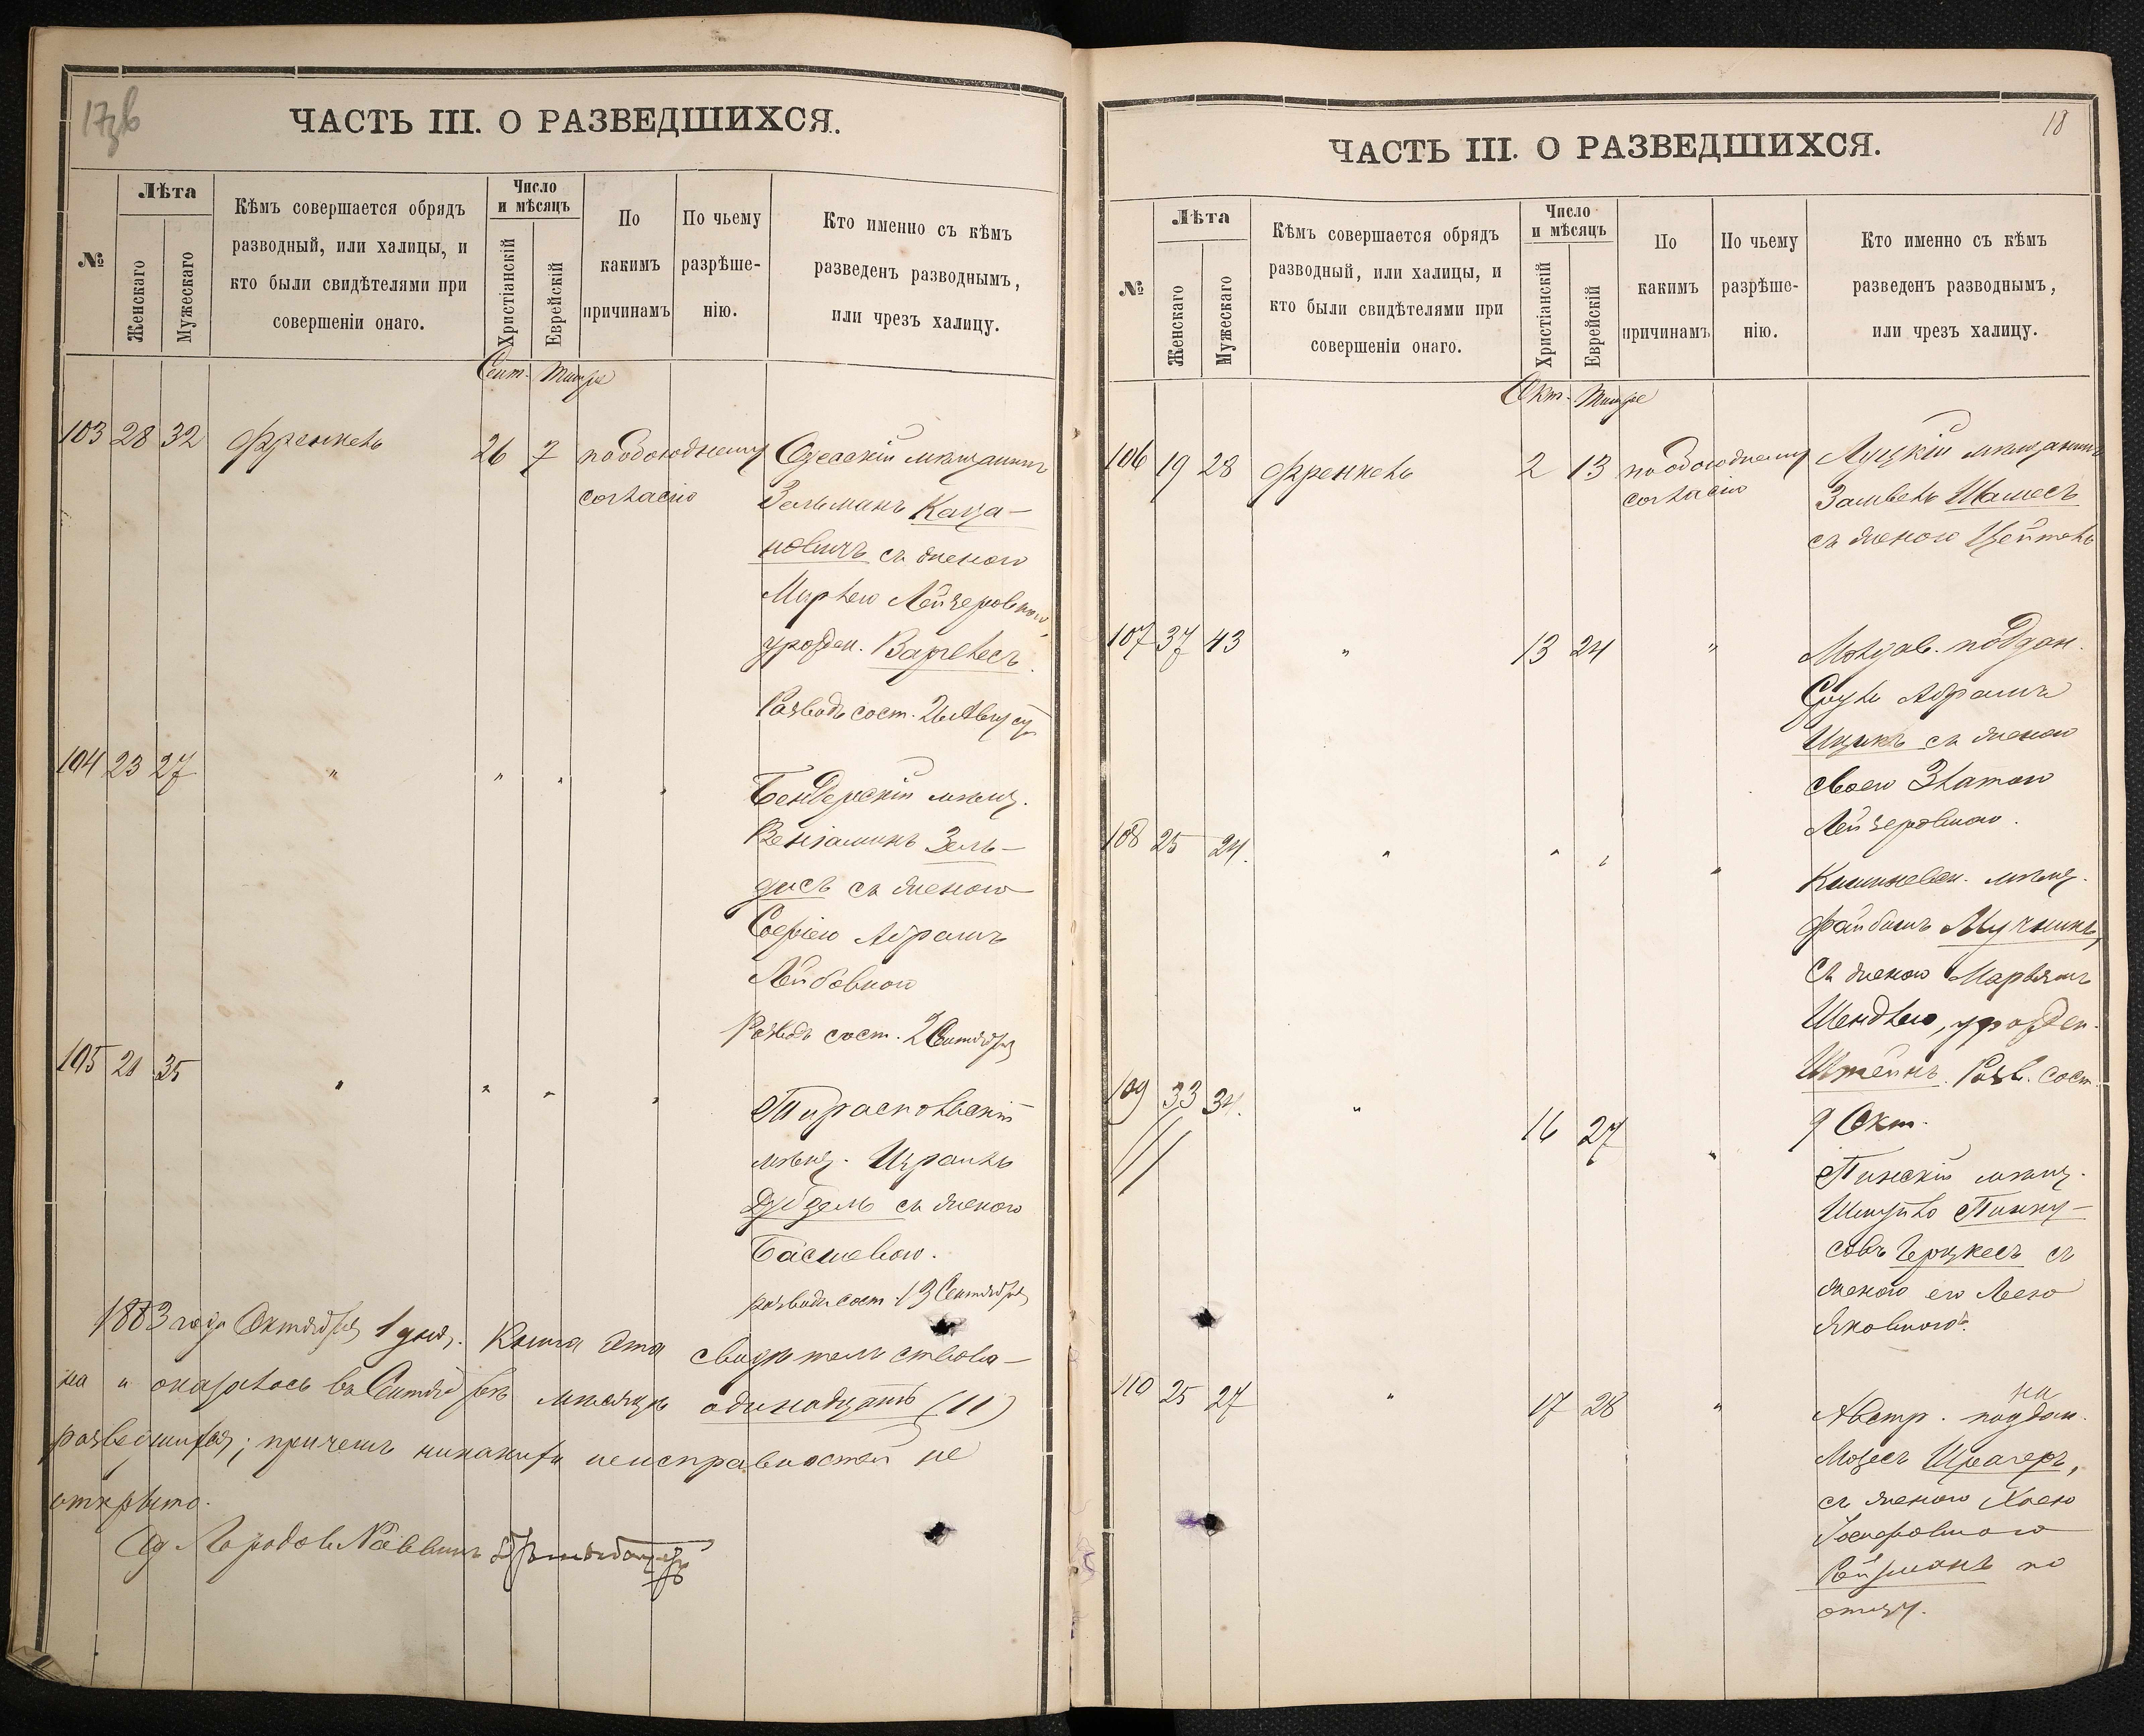 17зв
ЧАСТЬ III. О РАЗВЕДШИХСЯ.
№
Лѣта
Женскаго
Мужескаго
Кѣмъ совершается обрядъ
разводный, или халицы, и
кто были свидѣтелями при
совершеніи онаго.
Число
и мѣсяцъ
Христіанскій
Еврейскій
По
какимъ
причинамъ
По чьему
разрѣше-
нію.
Кто именно съ кѣмъ
разведенъ разводнымъ,
или чрезъ халицу.
Сент. Тишре
103 28 32 Френкель 26 7 по обоюдному Одесскій мѣщанинъ
согласію Зельманъ Каца-
новичъ съ женою
Лейзеровною,
урожден.
Разводъ сост. 26 Августа
104 23 27 " " " "
Бендерскій мѣщ.
Веніаминъ Зель-
дисъ съ женою
Софіею Абрамъ
Лейбовною
Разводъ сост. 2 Сентября
105 21 35 " " " "
Тираспольскій
мѣщ. Израиль
съ женою
Басшевою.
разводъ сост. 13 Сентября
1883 года Октября 1 дня. Книга эта свидѣтельствова-
на и оказалось въ Сентябрѣ мѣсяцѣ одинадцать (11)
разведшихся; причемъ никакихъ неисправностей не
открыто.
Од. Городов. Раввинъ
18
ЧАСТЬ III. О РАЗВЕДШИХСЯ.
№
Лѣта
Женскаго
Мужескаго
Кѣмъ совершается обрядъ
разводный, или халицы, и
кто были свидѣтелями при
совершеніи онаго.
Число
и мѣсяцъ
Христіанскій
Еврейскій
По
какимъ
причинамъ
По чьему
разрѣше-
нію.
Кто именно съ кѣмъ
разведенъ разводнымъ,
или чрезъ халицу.
Окт. Тишре
106 19 28 Френкель 2 13 по обоюдному Луцкій мѣщанинъ
согласію Замвель Шамесъ
съ женою Цейтель
107 37 43 " 13 24 " Молдав. поддан.
Сруль Абрамъ
Ицикъ съ женою
своею Златою
Лейзеровною.
108 25 24. " " " "
Кишиневск. мѣщ.
Файбишъ Мучникъ,
съ женою Марьямъ
Шендлею, урожден.
Штейнъ. Разв. сост.
9 Окт.
109 33 34. " 16 27 "
Пинскій мѣщ.
Пинху-
совъ съ
женою его Леею
Яковною.
110 25 27 " 17 28 " Австр. поддан.
Мозесъ Шрагеръ,
съ женою Хаею
Іосифовною
Рейзманъ по
отцу.